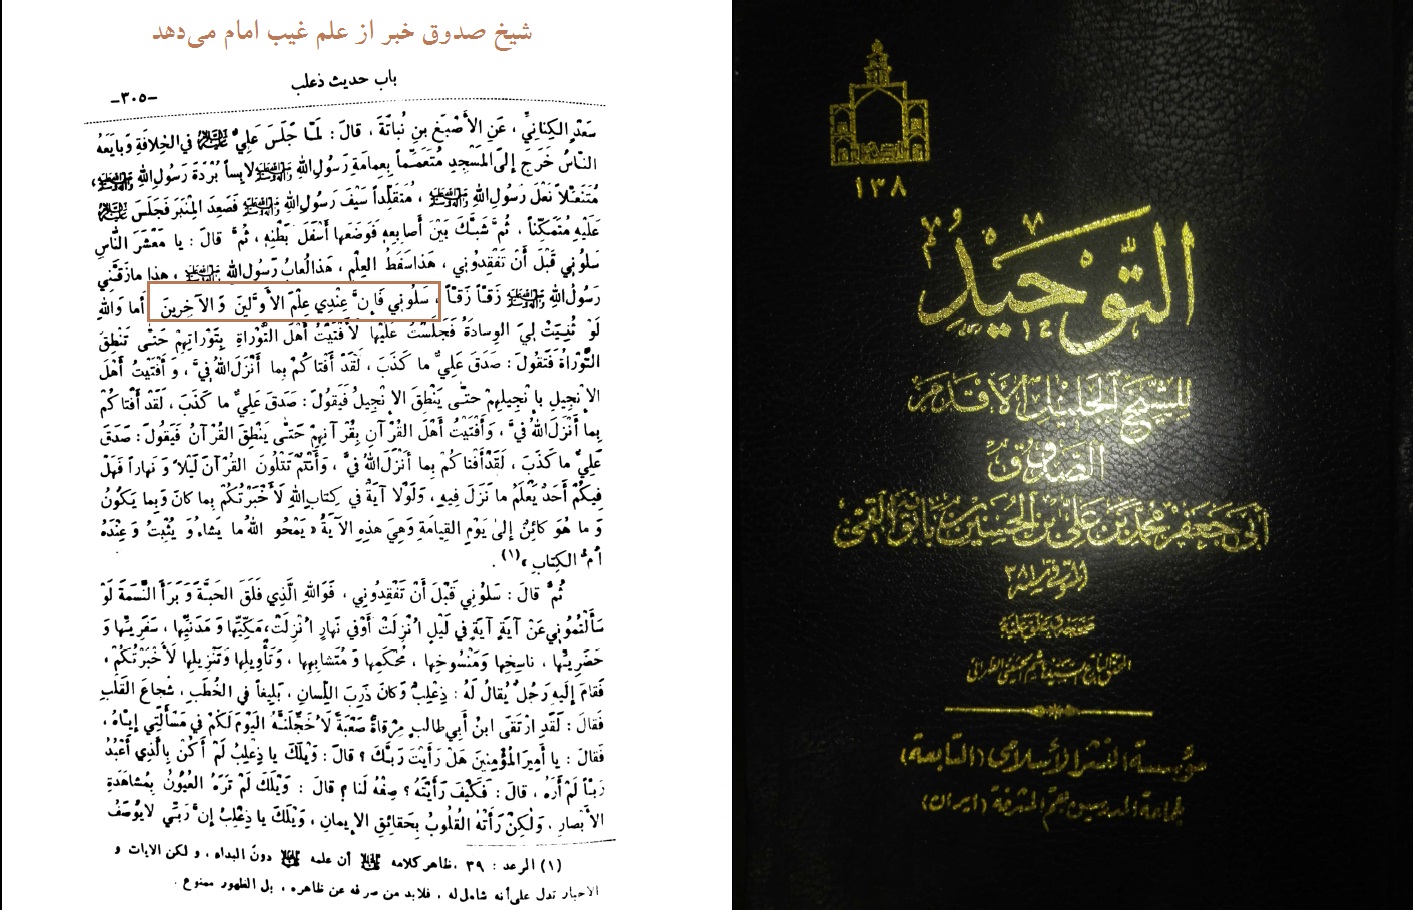 شیخ صدوق خبر از علم غیب امام می‌دهد
باب حديث ذعلب
-٣٠٥-
سَعْدٍ الكِنانِيِّ ، عَنِ الأَصْبَغِ بنِ نُباتَةَ ، قالَ : لَمّا جَلَسَ عَلِيٌّ عليه السلام في الخِلافَةِ وَبايَعَهُ
النّاسُ خَرَجَ إِلَى المَسْجِدِ مُتَعَمِّماً بِعِمامَةِ رَسُولِ اللهِ صلى الله عليه وآله وسلم لابِساً بُرْدَةَ رَسُولِ اللهِ صلى الله عليه وآله وسلم ،
مُتَنَعِّلاً نَعْلَ رَسُولِ اللهِ صلى الله عليه وآله وسلم ، مُتَقَلِّداً سَيْفَ رَسُولِ اللهِ صلى الله عليه وآله وسلم فَصَعِدَ المِنْبَرَ فَجَلَسَ عليه السلام
عَلَيْهِ مُتَمَكِّناً ، ثُمَّ شَبَّكَ بَيْنَ أَصابِعِهِ فَوَضَعَها أَسْفَلَ بَطْنِهِ ، ثُمَّ قالَ : يا مَعْشَرَ النّاسِ
سَلُونِي قَبْلَ أَنْ تَفْقِدُونِي ، هَذا سَفَطُ العِلْمِ ، هَذا لُعابُ رَسُولِ اللهِ صلى الله عليه وآله وسلم ، هذا ما زَقَّنِي
رَسُولُ اللهِ صلى الله عليه وآله وسلم زَقّاً زَقّاً ، سَلُونِي فَإِنَّ عِنْدِي عِلْمَ الأَوَّلِينَ وَالآخِرِينَ أَما وَاللهِ
لَوْ ثُنِيَتْ لِيَ الوِسادَةُ فَجَلَسْتُ عَلَيْها لَأَفْتَيْتُ أَهْلَ التَّوْراةِ بِتَوْراتِهِمْ حَتّى تَنْطِقَ
التَّوْراةُ فَتَقُولَ : صَدَقَ عَلِيٌّ ما كَذَبَ ، لَقَدْ أَفْتاكُمْ بِما أَنْزَلَ اللهُ فِيَّ ، وَأَفْتَيْتُ أَهْلَ
الإِنْجِيلِ بِإِنْجِيلِهِمْ حَتّى يَنْطِقَ الإِنْجِيلُ فَيَقُولَ : صَدَقَ عَلِيٌّ ما كَذَبَ ، لَقَدْ أَفْتاكُمْ
بِما أَنْزَلَ اللهُ فِيَّ ، وَأَفْتَيْتُ أَهْلَ القُرْآنِ بِقُرْآنِهِمْ حَتّى يَنْطِقَ القُرْآنُ فَيَقُولَ : صَدَقَ
عَلِيٌّ ما كَذَبَ ، لَقَدْ أَفْتاكُمْ بِما أَنْزَلَ اللهُ فِيَّ ، وَأَنْتُمْ تَتْلُونَ القُرْآنَ لَيْلاً وَنَهاراً فَهَلْ
فِيكُمْ أَحَدٌ يَعْلَمُ ما نَزَلَ فِيهِ ، وَلَوْلا آيَةٌ فِي كِتابِ اللهِ لَأَخْبَرْتُكُمْ بِما كانَ وَبِما يَكُونُ
وَما هُوَ كائِنٌ إِلى يَوْمِ القِيامَةِ وَهِيَ هَذِهِ الآيَةُ « يَمْحُو اللهُ ما يَشاءُ وَيُثْبِتُ وَعِنْدَهُ
أُمُّ الكِتابِ » (١) .
ثُمَّ قالَ : سَلُونِي قَبْلَ أَنْ تَفْقِدُونِي ، فَوَاللهِ الَّذِي فَلَقَ الحَبَّةَ وَبَرَأَ النَّسَمَةَ لَوْ
سَأَلْتُمُونِي عَنْ آيَةٍ آيَةٍ فِي لَيْلٍ أُنْزِلَتْ أَوْ فِي نَهارٍ أُنْزِلَتْ ، مَكِّيِّها وَمَدَنِيِّها ، سَفَرِيِّها وَ
حَضَرِيِّها ، ناسِخِها وَمَنْسُوخِها ، مُحْكَمِها وَمُتَشابِهِها ، وَتَأْوِيلِها وَتَنْزِيلِها لَأَخْبَرْتُكُمْ .
فَقامَ إِلَيْهِ رَجُلٌ يُقالُ لَهُ : ذِعْلِبٌ وَكانَ ذَرِبَ اللِّسانِ ، بَلِيغاً فِي الخُطَبِ ، شُجاعَ القَلْبِ
فَقالَ : لَقَدِ ارْتَقَى ابْنُ أَبِي طالِبٍ مِرْقاةً صَعْبَةً لَأُخَجِّلَنَّهُ اليَوْمَ لَكُمْ فِي مَسْأَلَتِي إِيّاهُ ،
فَقالَ : يا أَمِيرَ المُؤْمِنِينَ هَلْ رَأَيْتَ رَبَّكَ ؟ قالَ : وَيْلَكَ يا ذِعْلِبُ لَمْ أَكُنْ بِالَّذِي أَعْبُدُ
رَبّاً لَمْ أَرَهُ ، قالَ : فَكَيْفَ رَأَيْتَهُ ؟ صِفْهُ لَنا ؟ قالَ : وَيْلَكَ لَمْ تَرَهُ العُيُونُ بِمُشاهَدَةِ
الأَبْصارِ ، وَلَكِنْ رَأَتْهُ القُلُوبُ بِحَقائِقِ الإِيمانِ ، وَيْلَكَ يا ذِعْلِبُ إِنَّ رَبِّي لا يُوصَفُ
(١) الرعد : ٣٩ . ظاهر كلامه عليه السلام أن علمه عليه السلام دون البداء ، و لكن الايات و
الاخبار تدل على أنه شامل له ، فلابد من صرفه عن ظاهره ، بل الظهور ممنوع .
١٣٨
التَّوحِيدُ
للشيخ الجليل الأقدم
الصدوق
أبي جعفر محمد بن علي بن الحسين بن بابويه القمي
المتوفى ٣٨١
صححه وعلق عليه
المحقق البارع السيد هاشم الحسيني الطهراني
مؤسسة النشر الإسلامي (التابعة)
لجماعة المدرسين بقم المشرفة (ايران)